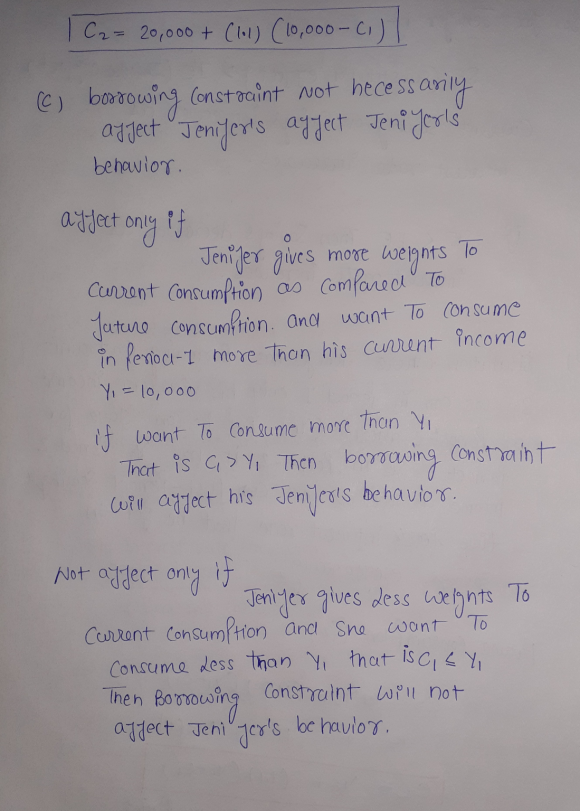 C₂ = 20,000 + (1.1) (10,000 - C₁)
(C) borrowing constraint not necessarily
affect Jenifer's affect Jenifer's
behavior.
affect only if
Jenifer gives more weights To
current consumption as compared To
future consumption. and want To consume
in period-1 more than his current income
Y₁ = 10,000
if want To consume more than Y₁
That is C₁ > Y₁ Then borrowing constraint
will affect his Jenifer's behavior.
Not affect only if
Jenifer gives less weights To
current consumption and she want To
consume less than Y₁ that is C₁ ≤ Y₁
Then Borrowing constraint will not
affect Jenifer's behavior.